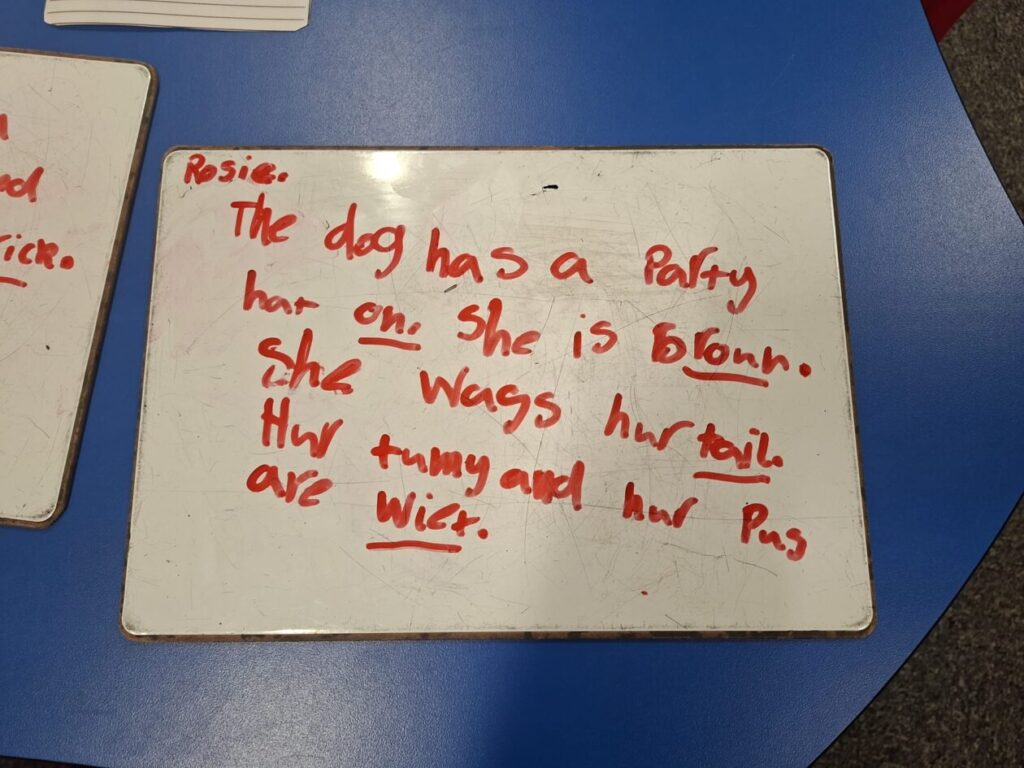 Rosie.
The dog has a Party
hat on. She is Broun.
She Wags hur tail.
Hur tumy and hur Pus
are Wiet.
rick.